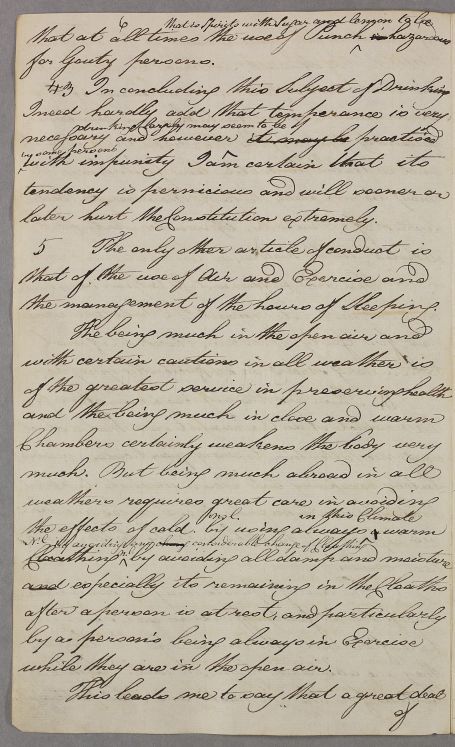 6 that is Spirits with Sugar and lemon to be
that at all times the use of Punch is hazardous
for Gouty persons.
4 In concluding this Subject of Drinking
I need hardly add that temperance is very
drinking largely may seem to be
necessary and however it may be practised
by some persons
with impunity I am certain that its
tendency is pernicious and will sooner or
later hurt the Constitution extremely.
5 The only other article of conduct is
that of the use of Air and Exercise and
the management of the hours of Sleeping.
The being much in the open air and
with certain cautions in all weather is
of the greatest service in preserving health
and the being much in close and warm
Chambers certainly weakens the body very
much. But being much abroad in all
weathers requires great care in avoiding
in this Climate
the effects of cold by using always warm
by avoiding any considerable change of Cloathing
Cloathing by avoiding all damp and moisture
and especially its remaining in the Cloaths
after a person is at rest, and particularly
by a person's being always in Exercise
while they are in the open air.
This leads me to say that a great deal
of